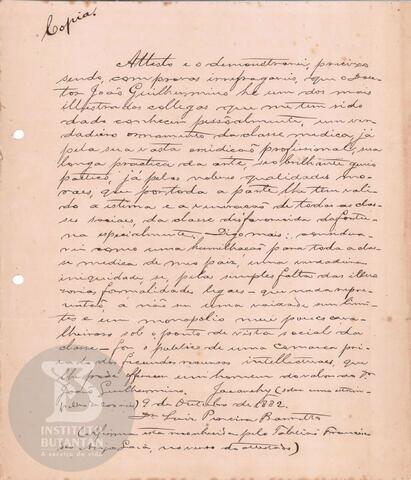 Copia.
Attesto e o demonstrarei, preciso
sendo, com provas irrefragaveis, que o Dou-
tor João Guilhermino he um dos mais
illustrados collegas que me tem sido
dado conhecer pessoalmente, um ver-
dadeiro ornamento da classe medica, já
pela sua vasta erudicção profissional, sua
longa practica da arte, seo brilhante
já pelas nobres qualidades mo-
raes, que por toda a parte lhe tem vali-
do a estima e a veneração de todas as clas-
ses sociaes, da classe desfavorecida da fortu-
na especialmente. Digo mais: considera-
rei como uma humilhação para toda a clas-
se medica de meo paiz, uma verdadeira
iniquidade, se, pela simples falta das
formalidades legaes - que nada repre-
sentão, a não ser uma vaidade
e um monopolio mui pouco cava-
lheiroso sob o ponto de vista social da
classe - for o publico de uma comarca pri-
vado dos fecundos recursos intellectuaes, que
lhe pode offerecer um homem do valor do Dr.
João Guilhermino. Jacarehy (sobre uma estam-
pilha) 9 de Outubro de 1882.
Dr. Luiz Pereira Barretto
(A firma está reconhecida pelo Tabellião Francisco
no verso do attestado)
INSTITUTO
BUTANTAN
A serviço da vida